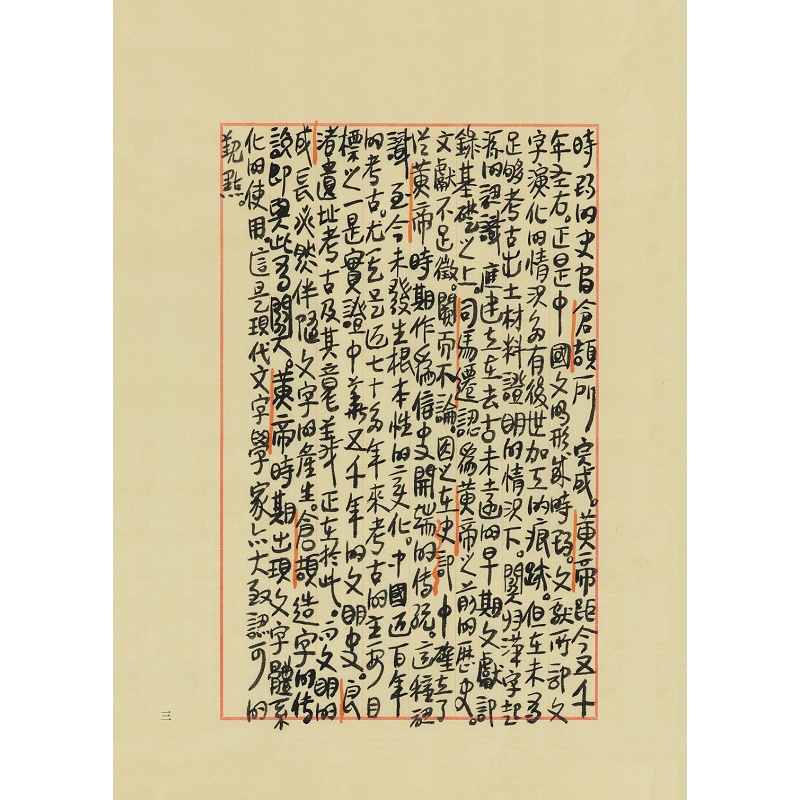 時期的史官倉頡所完成。黃帝距今五千
年左右。正是中國文明形成時期。文獻所記文
字演化的情況為有後世加工的痕跡。但在未為
足够考古出土材料證明的情況下。關於漢字起
源的認識應建立在去古未遠的早期文獻記
錄基礎之上。司馬遷認為黃帝之前的歷史。
文獻不足徵。闕而不論。因之在史記中確立了
從黃帝時期作為信史開端的傳統。這種認
識至今未發生根本性的變化。中國近百年
的考古。尤其是近七十多年來考古的主要目
標之一是實證中華五千年的文明史。良
渚遺址考古及其意義正在於此。而文明的
成長必然伴隨文字的產生。倉頡造字的傳
說即與此為關人。黃帝時期出現文字體系
化的使用。這是現代文字學家亦大致認可的
觀點。
三